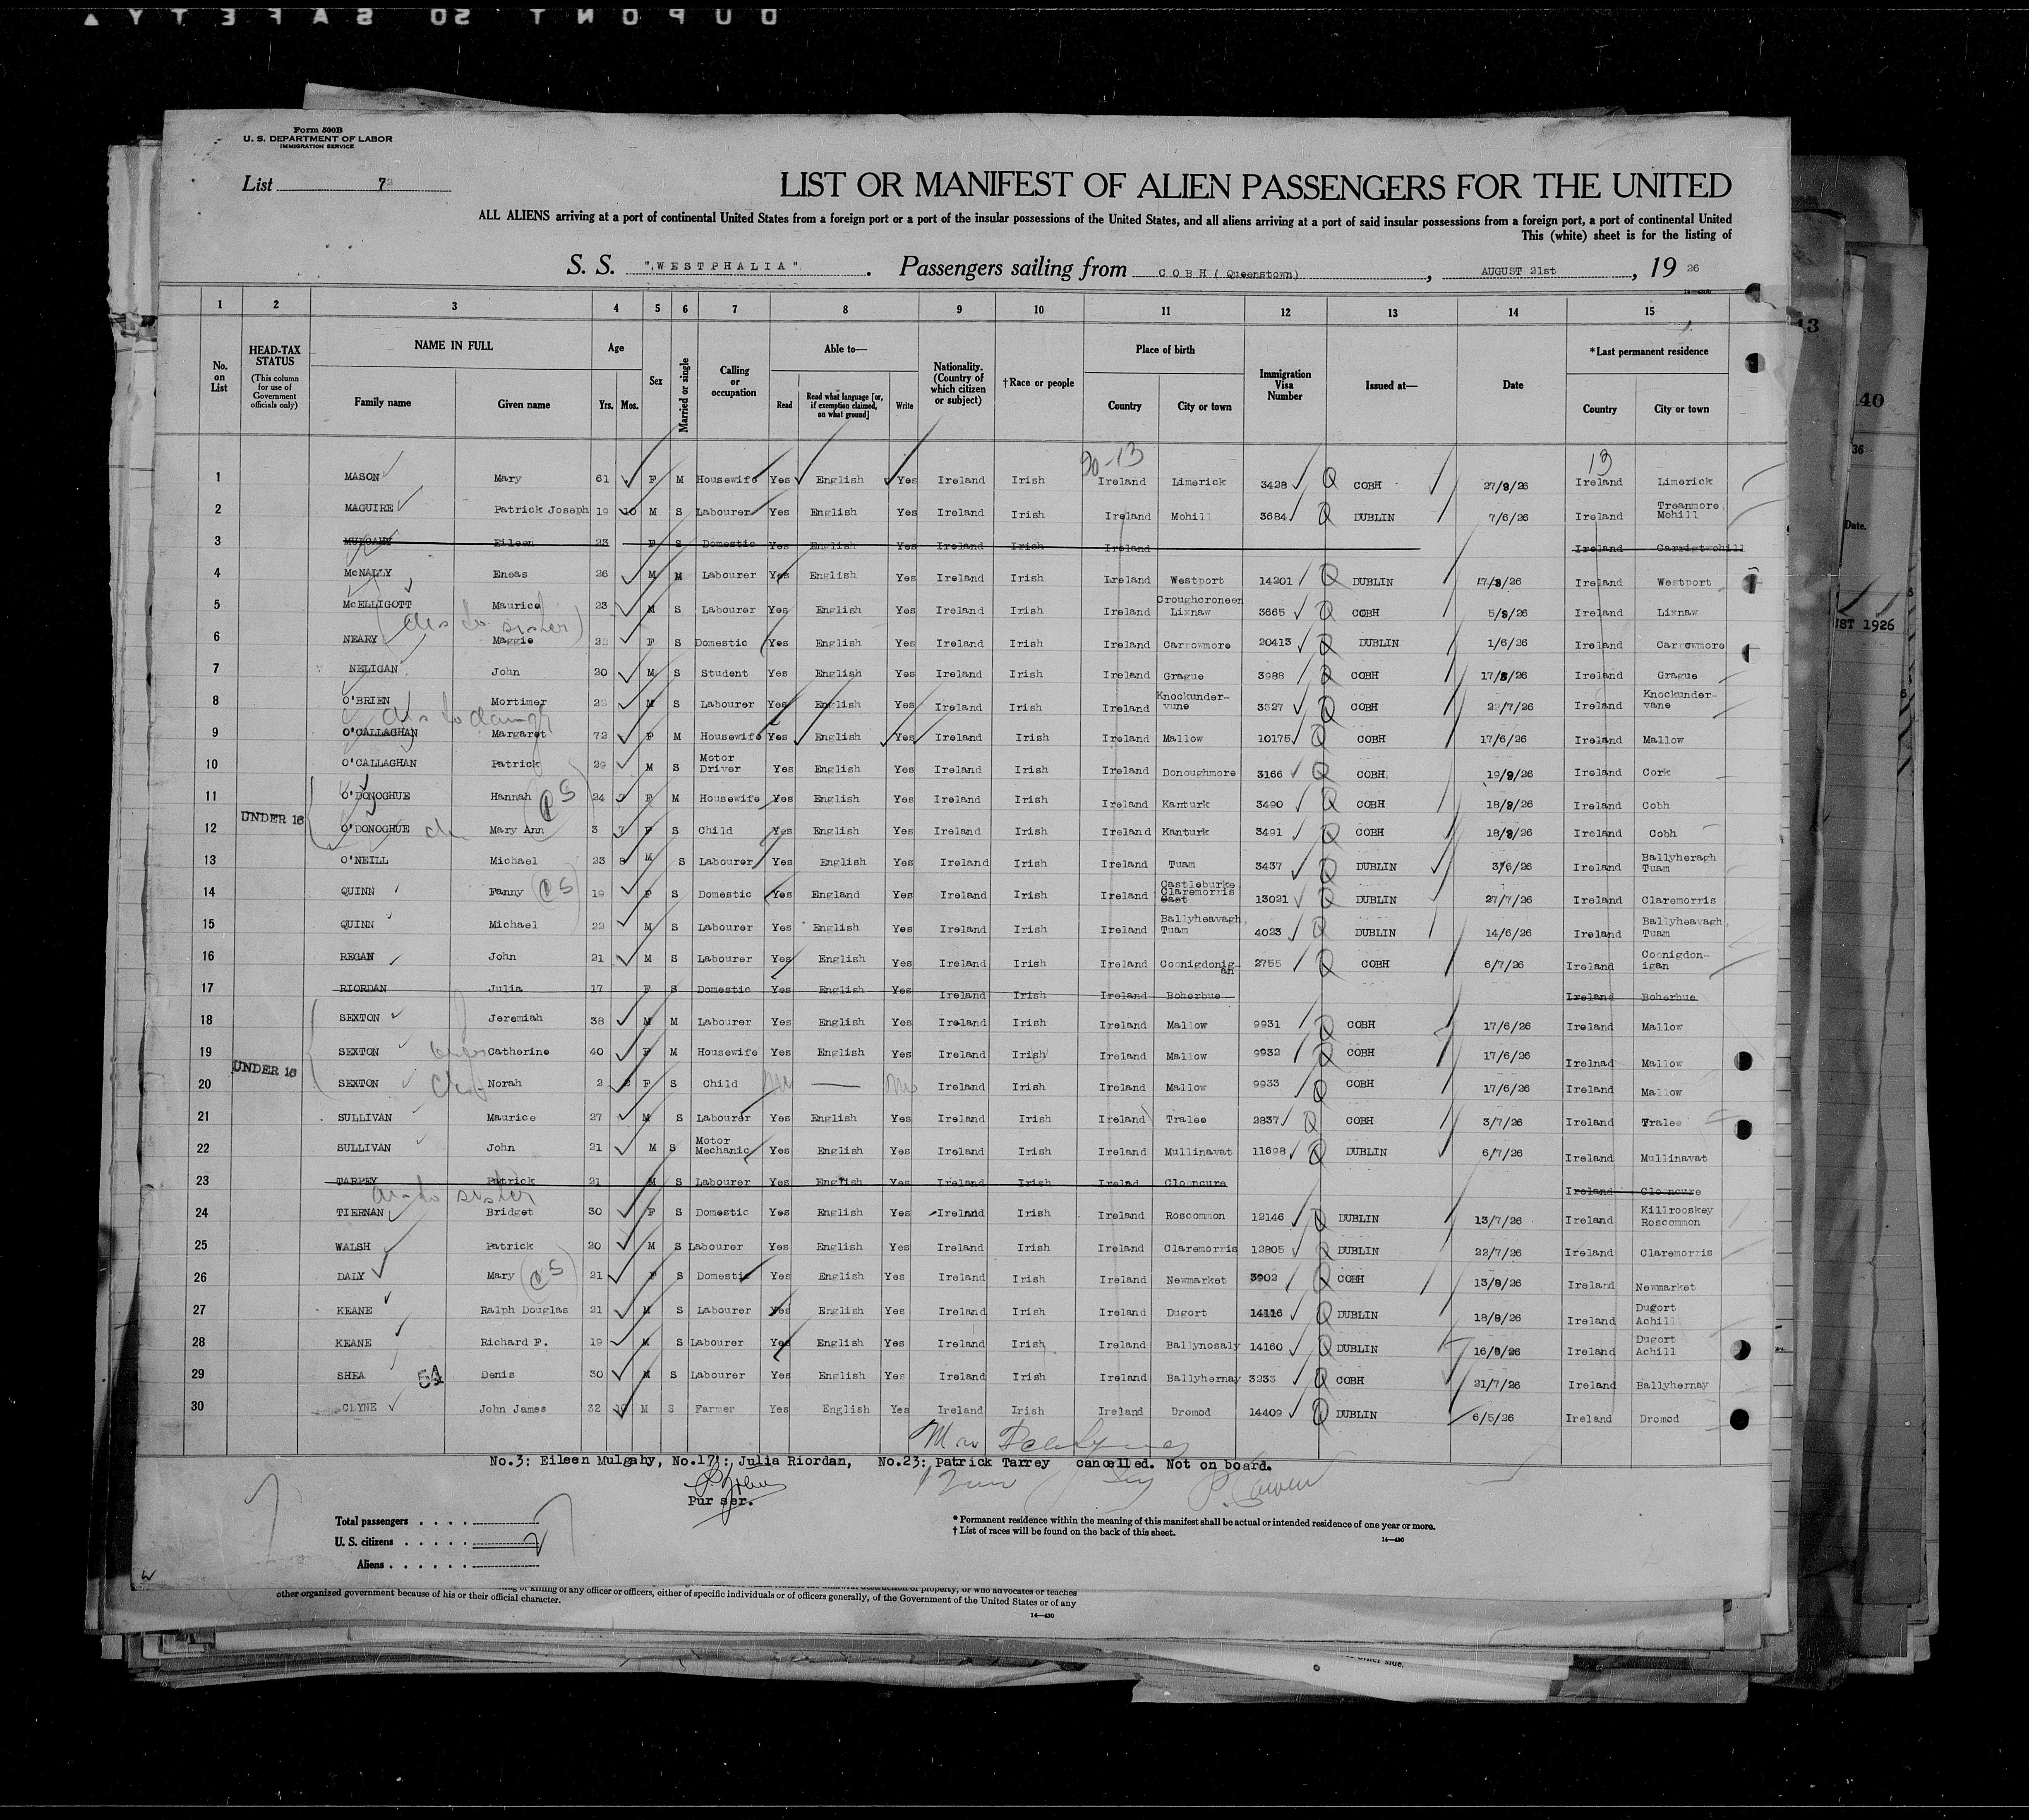 DUPONT SAFETY
Form 500B
U. S. DEPARTMENT OF LABOR
IMMIGRATION SERVICE
List 72
LIST OR MANIFEST OF ALIEN PASSENGERS FOR THE UNITED
ALL ALIENS arriving at a port of continental United States from a foreign port or a port of the insular possessions of the United States, and all aliens arriving at a port of said insular possessions from a foreign port, a port of continental United
This (white) sheet is for the listing of
S. S. "WESTPHALIA". Passengers sailing from COBH (Queenstown), AUGUST 21st, 1926
1 2 3 4 5 6 7 8 9 10 11 12 13 14 15
No. on List HEAD-TAX STATUS (This column for use of Government officials only) NAME IN FULL Family name Given name Age Yrs. Mos. Sex Married or single Calling or occupation Able to— Read Read what language [or, if exemption claimed, on what ground] Write Nationality. (Country of which citizen or subject) †Race or people Place of birth Country City or town Immigration Visa Number Issued at— Date *Last permanent residence Country City or town
1 MASON Mary 61 F M Housewife Yes English Yes Ireland Irish Ireland Limerick 3428 COBH 27/8/26 Ireland Limerick
2 MAGUIRE Patrick Joseph 19 10 M S Labourer Yes English Yes Ireland Irish Ireland Mohill 3684 DUBLIN 7/6/26 Ireland Treanmore, Mohill
3 MULGAHY Eileen 23 F S Domestic Yes English Yes Ireland Irish Ireland Ireland Carrigtwohill
4 McNALLY Eneas 26 M M Labourer Yes English Yes Ireland Irish Ireland Westport 14201 DUBLIN 17/8/26 Ireland Westport
5 McELLIGOTT Maurice 23 M S Labourer Yes English Yes Ireland Irish Ireland Croughcroneen Lixnaw 3665 COBH 5/8/26 Ireland Lixnaw
6 NEARY Maggie F S Domestic Yes English Yes Ireland Irish Ireland Carrowmore 20413 DUBLIN 1/6/26 Ireland Carrowmore
7 NELIGAN John 20 M S Student Yes English Yes Ireland Irish Ireland Grague 3988 COBH 17/8/26 Ireland Grague
8 O'BRIEN Mortimer M S Labourer Yes English Yes Ireland Irish Ireland Knockundervune 3327 COBH Ireland Knockunder-vane
9 O'CALLAGHAN Margaret 72 F M Housewife Yes English Yes Ireland Irish Ireland Mallow 10175 COBH 17/6/26 Ireland Mallow
10 O'CALLAGHAN Patrick 29 M S Motor Driver Yes English Yes Ireland Irish Ireland Donoughmore 3166 COBH. 19/8/26 Ireland Cork
11 O'DONOGHUE Hannah 24 F M Housewife Yes English Yes Ireland Irish Ireland Kanturk 3490 COBH 18/8/26 Ireland Cobh
UNDER 16
12 O'DONOGHUE Mary Ann 3 7 F S Child Yes English Yes Ireland Irish Ireland Kanturk 3491 COBH 18/8/26 Ireland Cobh
13 O'NEILL Michael 23 8 M S Labourer Yes English Yes Ireland Irish Ireland Tuam 3437 DUBLIN 3/6/26 Ireland Ballyheragh Tuam
14 QUINN Fanny 19 F S Domestic Yes England Yes Ireland Irish Ireland Castleburke Claremorris East 13021 DUBLIN 27/7/26 Ireland Claremorris
15 QUINN Michael 22 M S Labourer Yes English Yes Ireland Irish Ireland Ballyheavagh, Tuam 4023 DUBLIN 14/6/26 Ireland Ballyheavagh, Tuam
16 REGAN John 21 M S Labourer Yes English Yes Ireland Irish Ireland Coonigdonig-an 2755 COBH 6/7/26 Ireland Coonigdon-igan
17 RIORDAN Julia 17 F S Domestic Yes English Yes Ireland Irish Ireland Boherbue Ireland Boherbue
18 SEXTON Jeremiah 38 M M Labourer Yes English Yes Ireland Irish Ireland Mallow 9931 COBH 17/6/26 Ireland Mallow
19 SEXTON Catherine 40 F M Housewife Yes English Yes Ireland Irish Ireland Mallow 9932 COBH 17/6/26 Irelnad Mallow
UNDER 16
20 SEXTON Norah 2 F S Child No — No Ireland Irish Ireland Mallow 9933 COBH 17/6/26 Ireland Mallow
21 SULLIVAN Maurice 27 M S Labourer Yes English Yes Ireland Irish Ireland Tralee 2837 COBH 3/7/26 Ireland Tralee
22 SULLIVAN John 21 M S Motor Mechanic Yes English Yes Ireland Irish Ireland Mullinavat 11698 DUBLIN 6/7/26 Ireland Mullinavat
23 TARPEY Patrick 21 M S Labourer Yes English Yes Ireland Irish Irelnd Clooncure Ireland Clooncure
24 TIERNAN Bridget 30 F S Domestic Yes English Yes Ireland Irish Ireland Roscommon 12146 DUBLIN 13/7/26 Ireland Killrooskey Roscommon
25 WALSH Patrick 20 M S Labourer Yes English Yes Ireland Irish Ireland Claremorris 12805 DUBLIN 22/7/26 Ireland Claremorris
26 DALY Mary 21 F S Domestic Yes English Yes Ireland Irish Ireland Newmarket 3902 COBH 13/8/26 Ireland Newmarket
27 KEANE Ralph Douglas 21 M S Labourer Yes English Yes Ireland Irish Ireland Dugort 14116 DUBLIN 18/8/26 Ireland Dugort Achill
28 KEANE Richard F. 19 M S Labourer Yes English Yes Ireland Irish Ireland Ballynosaly 14160 DUBLIN 16/8/26 Ireland Dugort Achill
29 SHEA 54 Denis 30 M S Labourer Yes English Yes Ireland Irish Ireland Ballyhernay 3233 COBH 21/7/26 Ireland Ballyhernay
30 CLYNE John James 32 10 M S Farmer Yes English Yes Ireland Irish Ireland Dromod 14409 DUBLIN 6/5/26 Ireland Dromod
No.3: Eileen Mulgahy, No.17: Julia Riordan, No.23: Patrick Tarrey cancelled. Not on board.
Purser.
Total passengers
U. S. citizens
Aliens
* Permanent residence within the meaning of this manifest shall be actual or intended residence of one year or more.
† List of races will be found on the back of this sheet.
14—430
other organized government because of his or their official character.
killing of any officer or officers, either of specific individuals or of officers generally, of the Government of the United States or of any
14—430